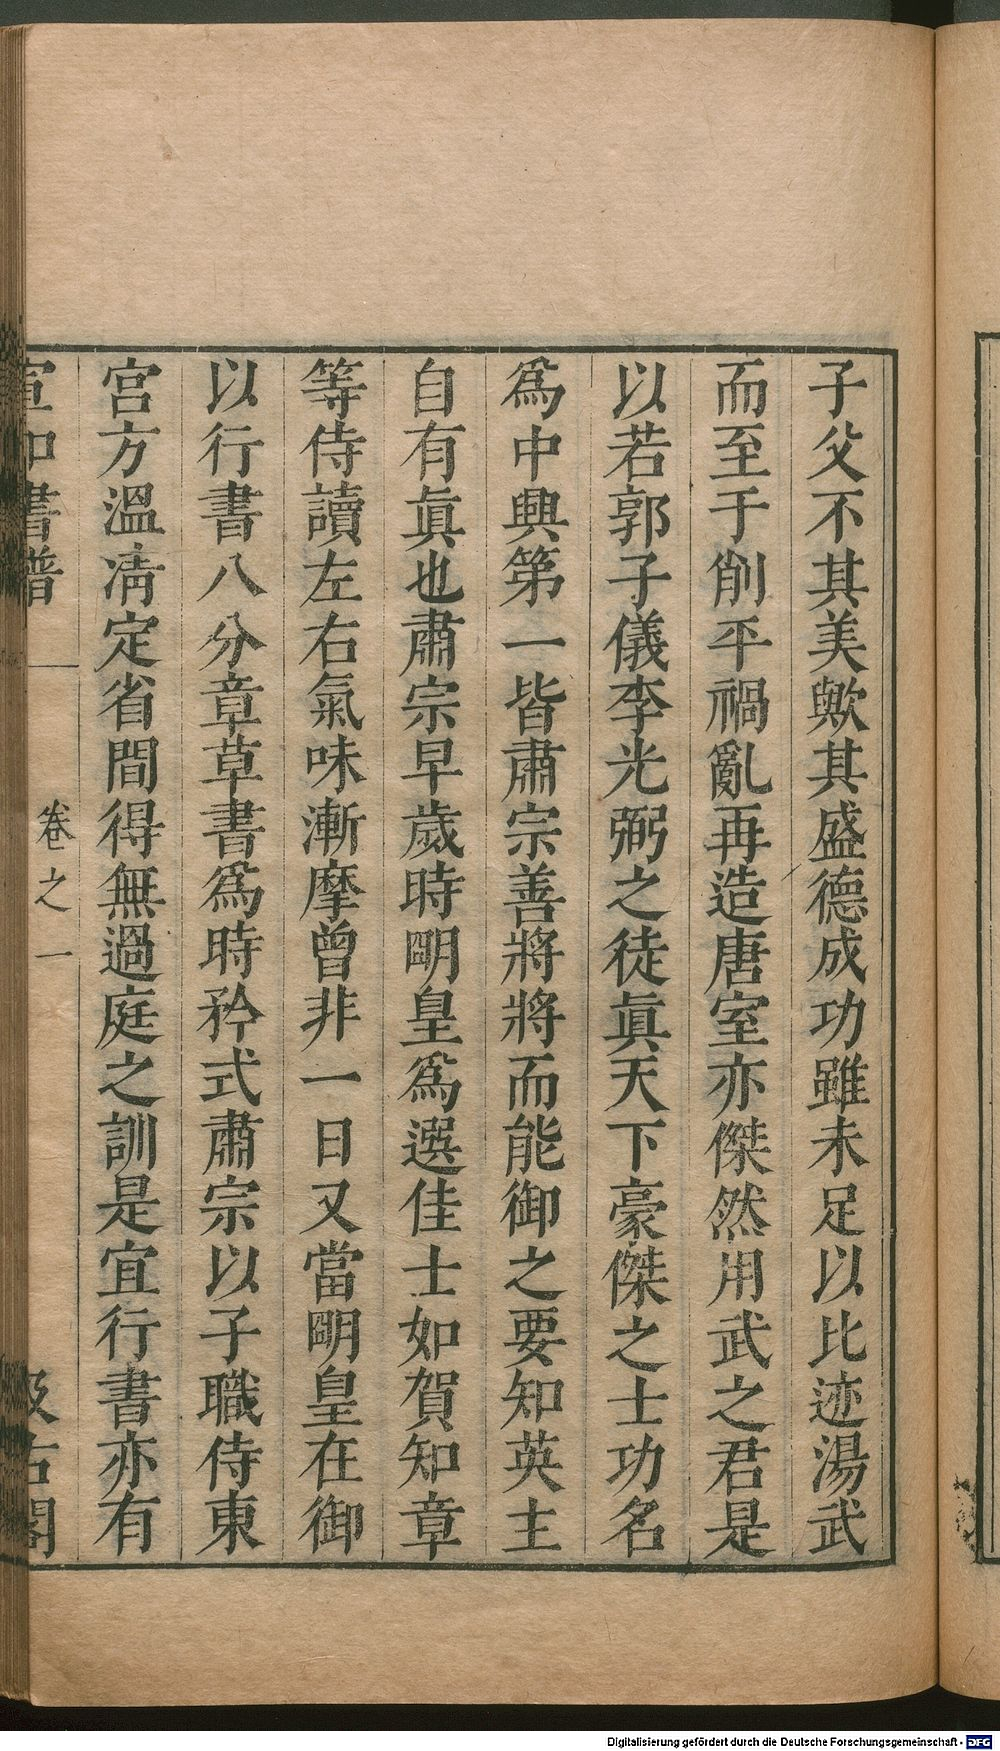 子父不其美歟其盛德成功雖未足以比迹湯武
而至于削平禍亂再造唐室亦傑然用武之君是
以若郭子儀李光弼之徒眞天下豪傑之士功名
爲中興第一皆肅宗善將將而能御之要知英主
自有眞也肅宗早歲時明皇爲選佳士如賀知章
等侍讀左右氣味漸摩曾非一日又當明皇在御
以行書八分章草書爲時矜式肅宗以子職侍東
宮方溫凊定省間得無過庭之訓是宜行書亦有
宣和書譜 卷之一 汲古閣
Digitalisierung gefördert durch die Deutsche Forschungsgemeinschaft - DFG